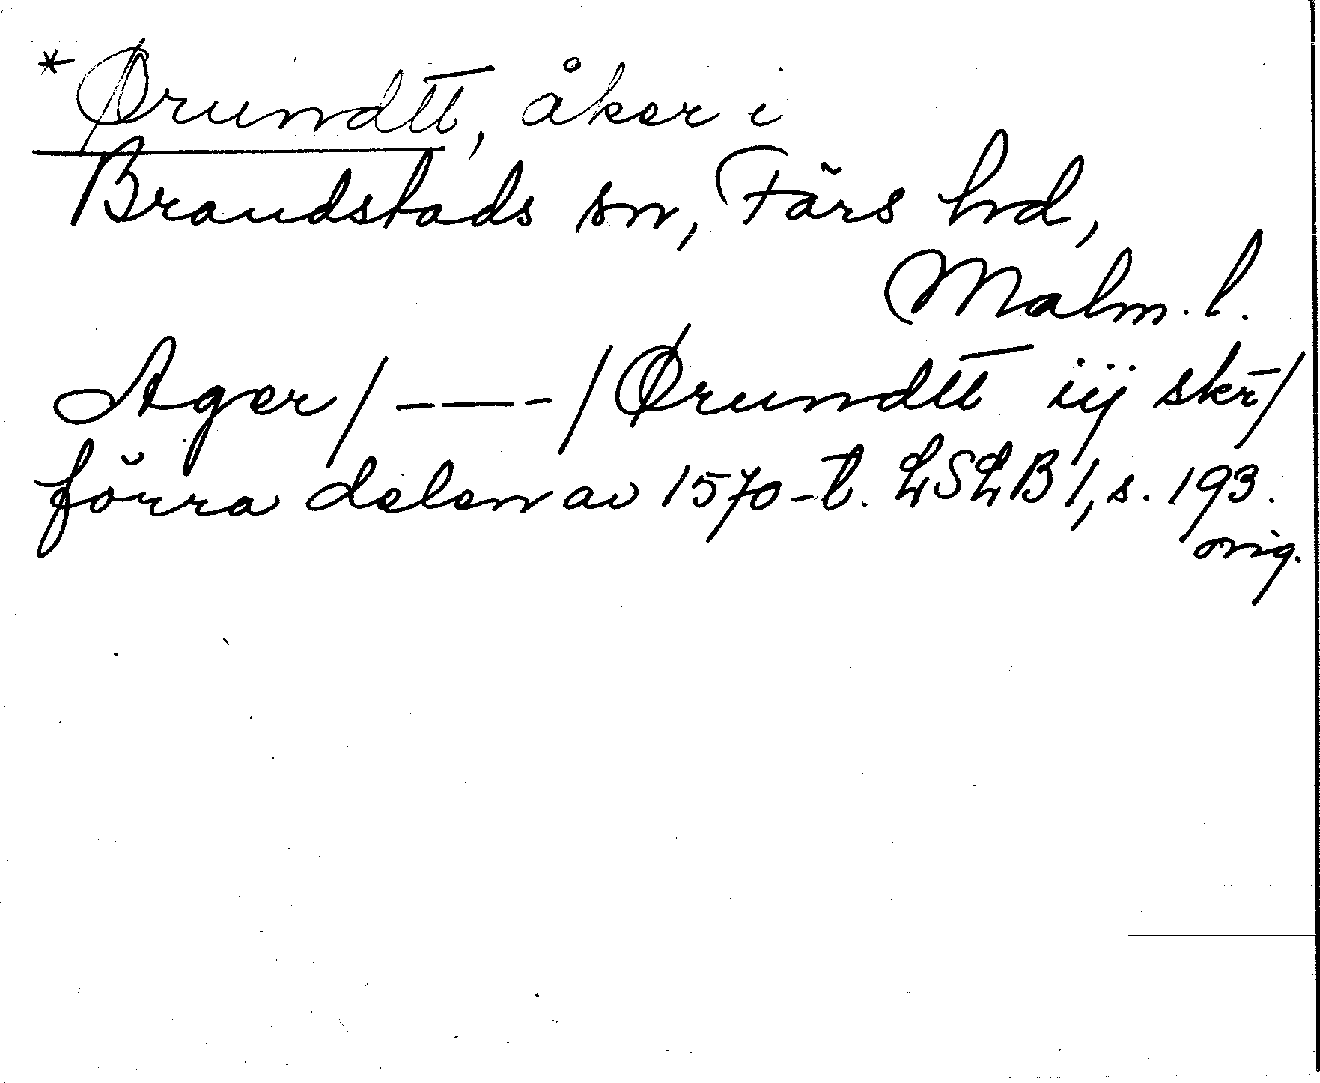 *Ørundtt, åker i
Brandstads sn, Färs hd,
Malm. l.
Ager/– — –/Ørundtt iij skr/
förra delen av 1570-t. LSLB 1, s. 193.
orig.